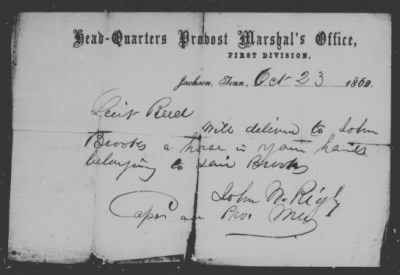 Head-Quarters Provost Marshal's Office,
FIRST DIVISION,
Jackson, Tenn. Oct 23 1862
Lieut Reed
Will deliver to John
Brooks a horse in your hands
belonging to said Brooks
John N. Rigly
Capt an Pro.